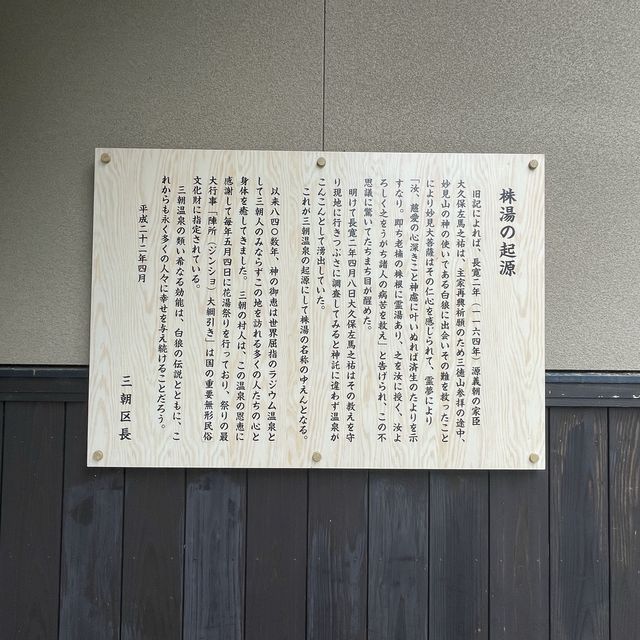 株湯の起源
旧記によれば、長寛二年（一一六四年）源義朝の家臣
大久保左馬之祐は、主家再興祈願のため三徳山参拝の途中、
妙見山の神の使いである白狼に出会いその難を救ったこと
により妙見大菩薩はその仁心を感じられて、霊夢により
「汝、慈愛の心深きこと神慮に叶いぬれば済生のたよりを示
すなり。即ち老楠の株根に霊湯あり、之を汝に授く、汝よ
ろしく之をうがち諸人の病苦を救え」と告げられ、この不
思議に驚いてたちまち目が醒めた。
明けて長寛二年四月八日大久保左馬之祐はその教えを守
り現地に行きつぶさに調査してみると神託に違わず温泉が
こんこんとして湧出していた。
これが三朝温泉の起源にして株湯の名称のゆえんとなる。
以来八四〇数年、神の御恵は世界屈指のラジウム温泉と
して三朝人のみならずこの地を訪れる多くの人たちの心と
身体を癒してきました。三朝の村人は、この温泉の恩恵に
感謝して毎年五月四日に花湯祭りを行っており、祭りの最
大行事「陣所（ジンショ）大綱引き」は国の重要無形民俗
文化財に指定されている。
三朝温泉の類い希なる効能は、白狼の伝説とともに、こ
れからも永く多くの人々に幸せを与え続けることだろう。
平成二十二年四月
三朝区長